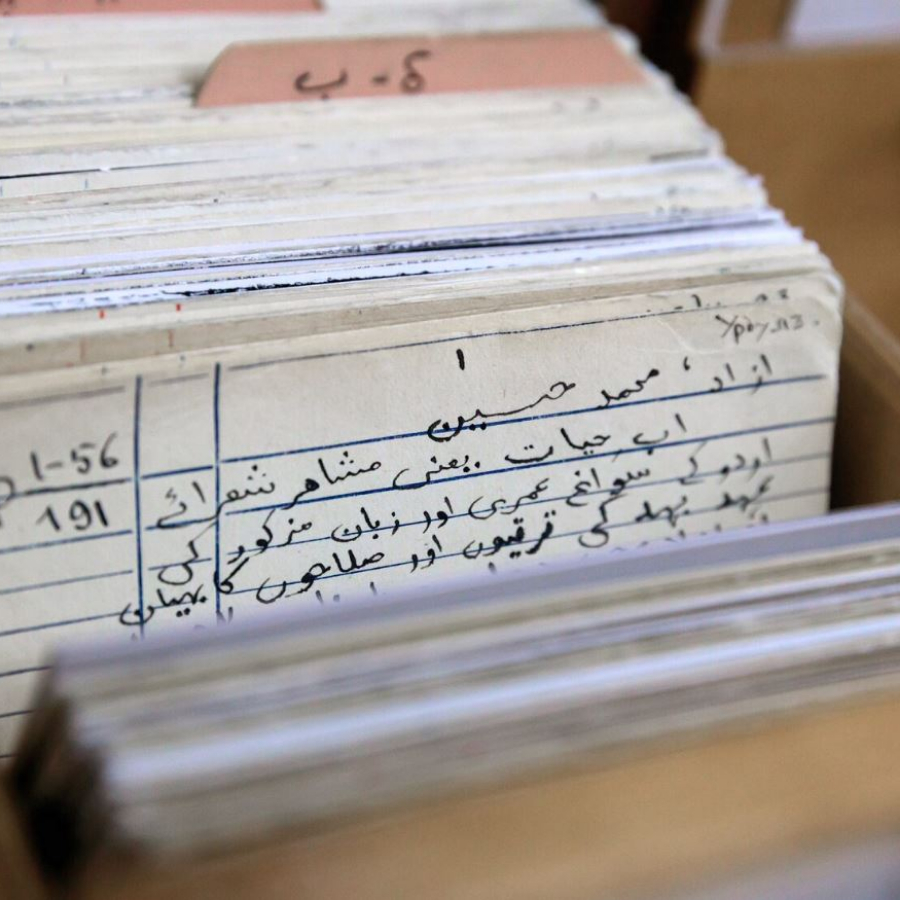 ب - ئ
Урду яз.
١
ازاد، محمد حسین
اب حیات یعنی مشاهر شعرائے
اردو کے سوانح عمری اور زبان مزکور کی
عهد بهد کی ترقیوں اور صلاحوں کا بهیان
1-56
191